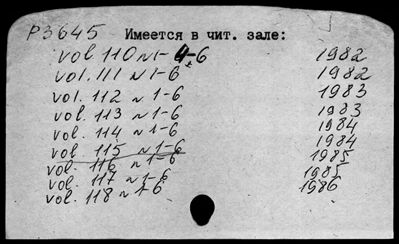 P3645 Имеется в чит. зале:
vol. 110 N 1-6 1982
vol. 111 N 1-6 1982
vol. 112 N 1-6 1983
vol. 113 N 1-6 1983
vol. 114 N 1-6 1984
vol. 115 N 1-6 1984
vol. 116 N 1-6 1985
vol. 117 N 1-6 1985
vol. 118 N 1-6 1986